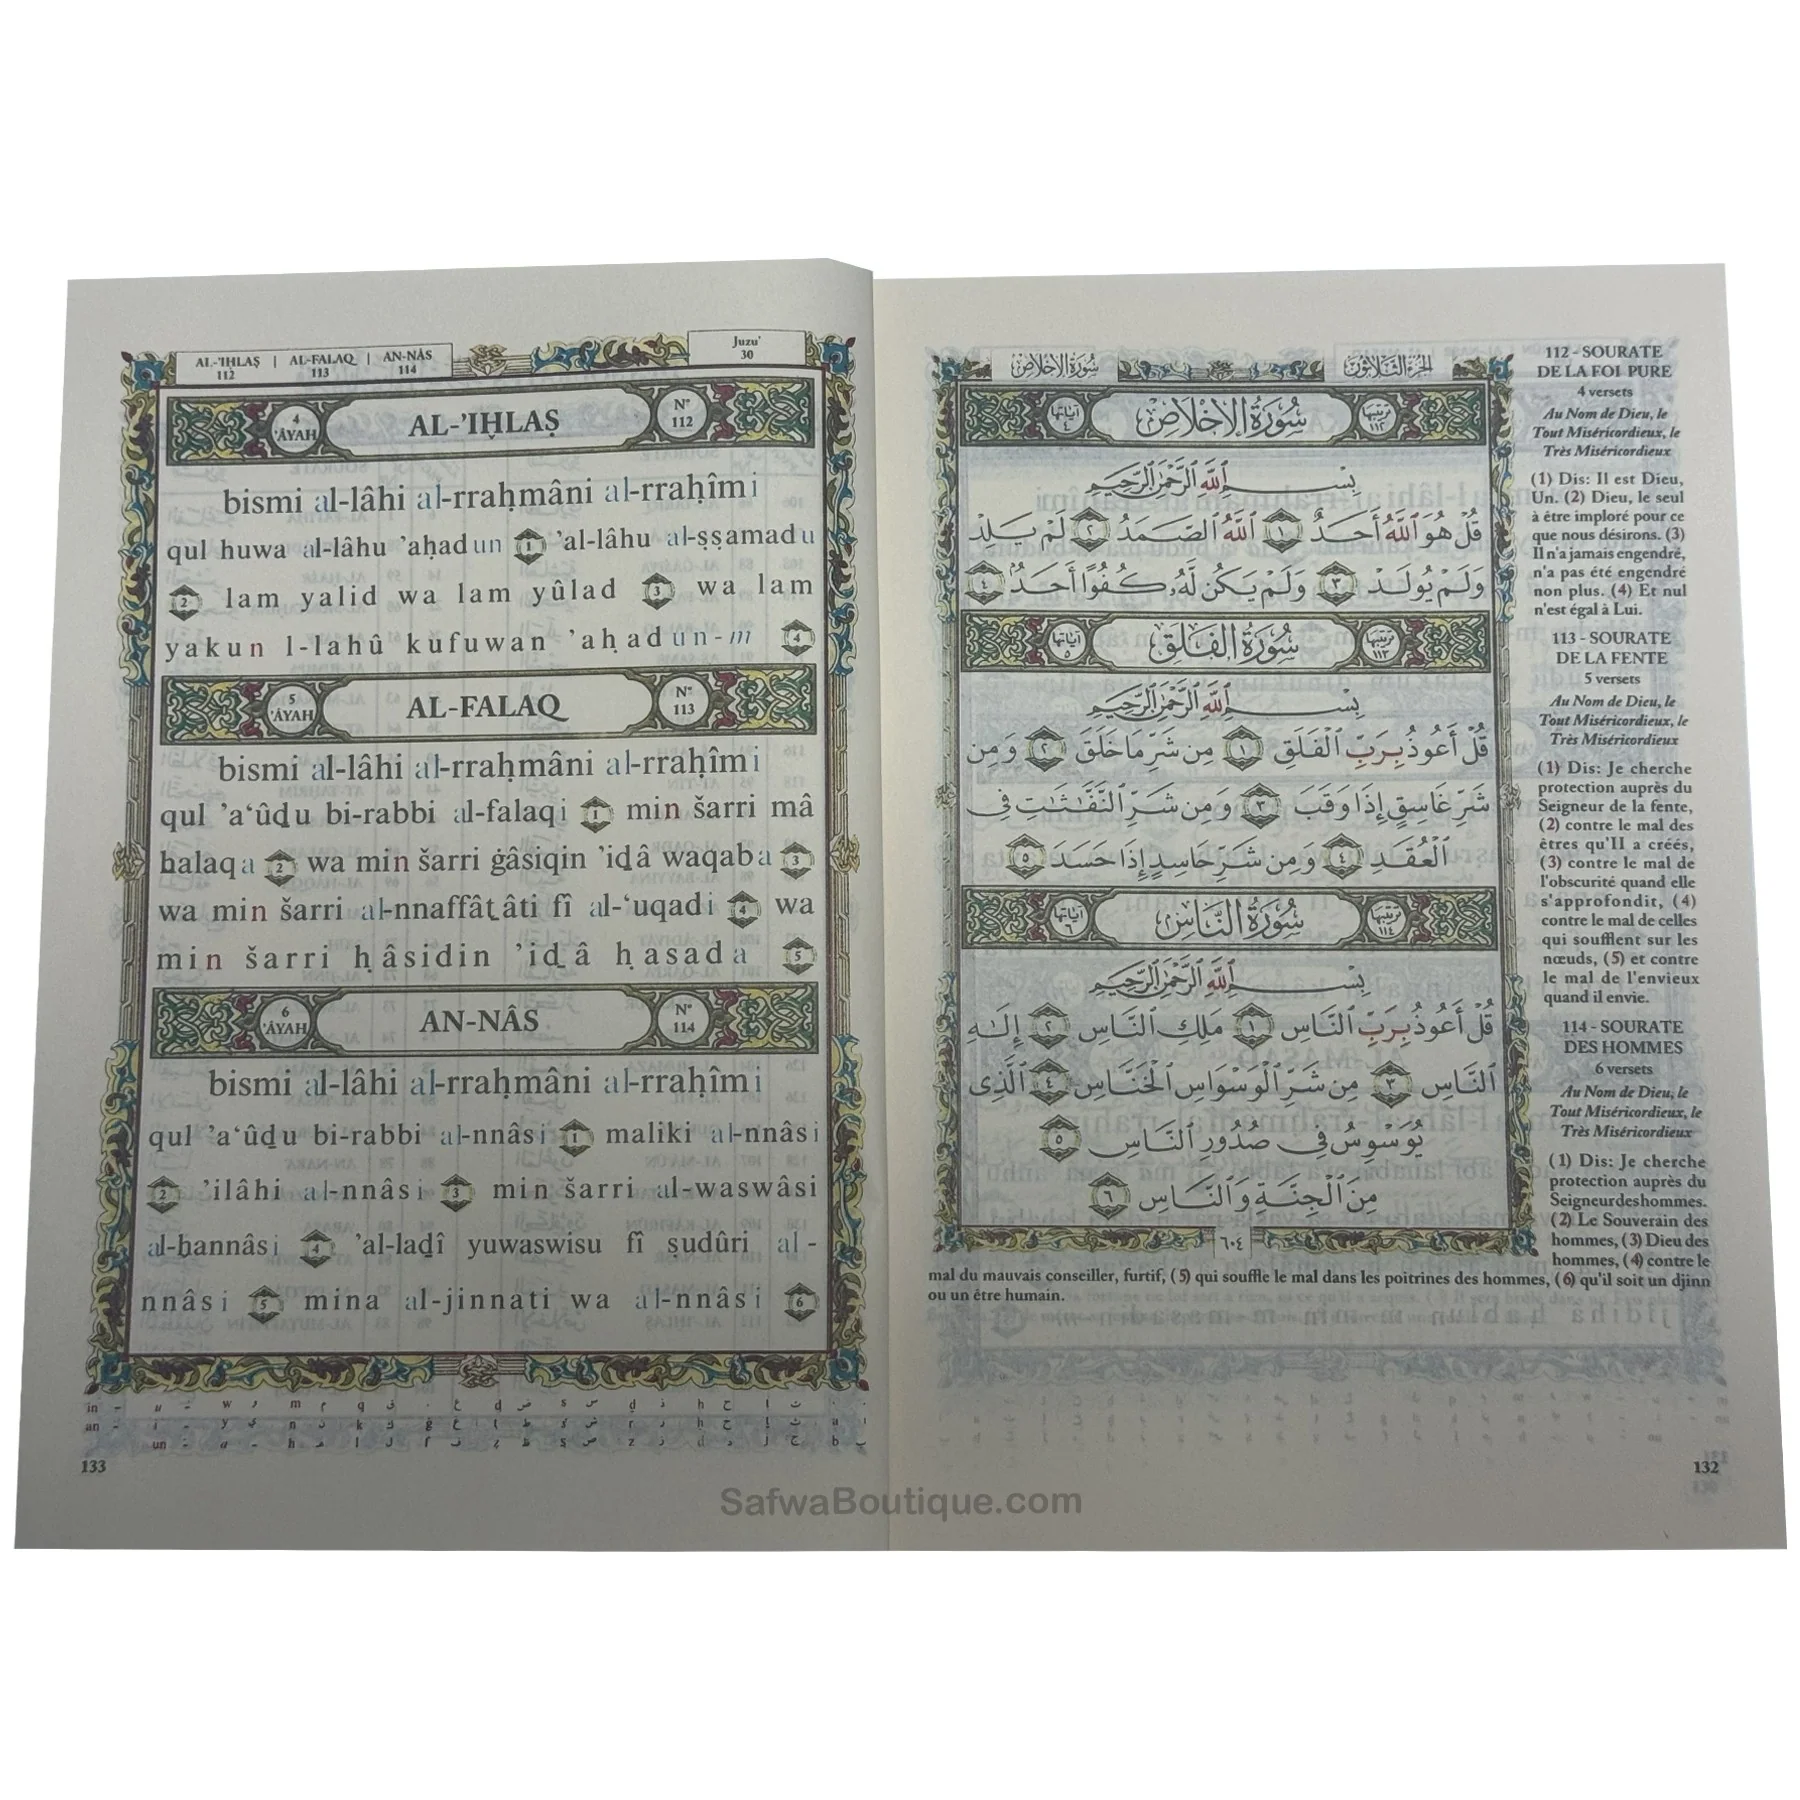 AL-'IḤLAṢ | AL-FALAQ | AN-NÂS
112 113 114
Juzu'
30
4
'ÂYAH
AL-'IḤLAṢ
N°
112
bismi al-lâhi al-rraḥmâni al-rraḥîmi
qul huwa al-lâhu 'aḥadun 1 'al-lâhu al-ṣṣamadu
2 lam yalid wa lam yûlad 3 wa lam
yakun l-lahû kufuwan 'aḥadun-m 4
5
'ÂYAH
AL-FALAQ
N°
113
bismi al-lâhi al-rraḥmâni al-rraḥîmi
qul 'a‘ûḏu bi-rabbi al-falaqi 1 min šarri mâ
ḫalaqa 2 wa min šarri ġâsiqin 'iḏâ waqaba 3
wa min šarri al-nnaffâṯâti fî al-‘uqadi 4 wa
min šarri ḥâsidin 'iḏâ ḥasada 5
6
'ÂYAH
AN-NÂS
N°
114
bismi al-lâhi al-rraḥmâni al-rraḥîmi
qul 'a‘ûḏu bi-rabbi al-nnâsi 1 maliki al-nnâsi
2 'ilâhi al-nnâsi 3 min šarri al-waswâsi
al-ḫannâsi 4 'al-laḏî yuwaswisu fî ṣudûri al-
nnâsi 5 mina al-jinnati wa al-nnâsi 6
133
سُورَةُ الإخلاص
الجزء الثلاثون
آياتها
٤
سُورَةُ الإِخْلَاصِ
ترتيبها
١١٢
بِسْمِ ٱللَّهِ ٱلرَّحْمَٰنِ ٱلرَّحِيمِ
قُلْ هُوَ ٱللَّهُ أَحَدٌ ١ ٱللَّهُ ٱلصَّمَدُ ٢ لَمْ يَلِدْ
وَلَمْ يُولَدْ ٣ وَلَمْ يَكُن لَّهُۥ كُفُوًا أَحَدٌۢ ٤
آياتها
٥
سُورَةُ الفَلَقِ
ترتيبها
١١٣
بِسْمِ ٱللَّهِ ٱلرَّحْمَٰنِ ٱلرَّحِيمِ
قُلْ أَعُوذُ بِرَبِّ ٱلْفَلَقِ ١ مِن شَرِّ مَا خَلَقَ ٢ وَمِن
شَرِّ غَاسِقٍ إِذَا وَقَبَ ٣ وَمِن شَرِّ ٱلنَّفَّٰثَٰتِ فِى
ٱلْعُقَدِ ٤ وَمِن شَرِّ حَاسِدٍ إِذَا حَسَدَ ٥
آياتها
٦
سُورَةُ النَّاسِ
ترتيبها
١١٤
بِسْمِ ٱللَّهِ ٱلرَّحْمَٰنِ ٱلرَّحِيمِ
قُلْ أَعُوذُ بِرَبِّ ٱلنَّاسِ ١ مَلِكِ ٱلنَّاسِ ٢ إِلَٰهِ
ٱلنَّاسِ ٣ مِن شَرِّ ٱلْوَسْوَاسِ ٱلْخَنَّاسِ ٤ ٱلَّذِى
يُوَسْوِسُ فِى صُدُورِ ٱلنَّاسِ ٥
مِنَ ٱلْجِنَّةِ وَٱلنَّاسِ ٦
٦٠٤
112 - SOURATE
DE LA FOI PURE
4 versets
Au Nom de Dieu, le
Tout Miséricordieux, le
Très Miséricordieux
(1) Dis: Il est Dieu,
Un. (2) Dieu, le seul
à être imploré pour ce
que nous désirons. (3)
Il n'a jamais engendré,
n'a pas été engendré
non plus. (4) Et nul
n'est égal à Lui.
113 - SOURATE
DE LA FENTE
5 versets
Au Nom de Dieu, le
Tout Miséricordieux, le
Très Miséricordieux
(1) Dis: Je cherche
protection auprès du
Seigneur de la fente,
(2) contre le mal des
êtres qu'Il a créés,
(3) contre le mal de
l'obscurité quand elle
s'approfondit, (4)
contre le mal de celles
qui soufflent sur les
nœuds, (5) et contre
le mal de l'envieux
quand il envie.
114 - SOURATE
DES HOMMES
6 versets
Au Nom de Dieu, le
Tout Miséricordieux, le
Très Miséricordieux
(1) Dis: Je cherche
protection auprès du
Seigneurdeshommes.
(2) Le Souverain des
hommes, (3) Dieu des
hommes, (4) contre le
mal du mauvais conseiller, furtif, (5) qui souffle le mal dans les poitrines des hommes, (6) qu'il soit un djinn
ou un être humain.
132
SafwaBoutique.com